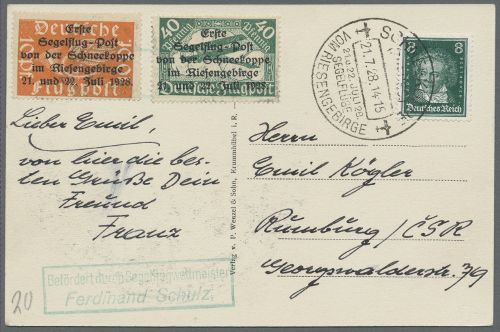 Erste
Segelflug-Post
von der Schneekoppe
im Riesengebirge
21. und 22. Juli 1928.
Erste
Segelflug-Post
von der Schneekoppe
im Riesengebirge
21. und 22. Juli 1928.
Deutsche
Flugpost
40 40
21.7.28.14-15
21. u. 22. JULI 1928
SEGELFLÜGE
VOM RIESENGEBIRGE
8 8
Deutsches Reich
Lieber Emil,
von hier die bes-
ten Grüße Dein
Freund
Franz
Verlag v. P. Wenzel & Sohn, Krummhübel i. R.
Herrn
Emil Kögler
Rumburg / ČSR
Georgswalderstr. 79
Befördert durch Segelflugweltmeister
Ferdinand Schulz.
20